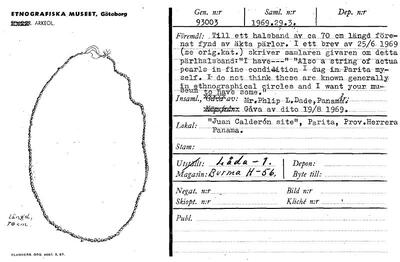 ETNOGRAFISKA MUSEET, Göteborg
ARKEOL.
längd,
70 cm
ELANDERS. GBG 4067. 3. 67.
Gen. n:r
93003
Saml. n:r
1969.29.3.
Dep. n:r
Föremål: Till ett halsband av ca 70 cm längd före-
nat fynd av äkta pärlor. I ett brev av 25/6 1969
(se orig.kat.) skriver samlaren givaren om detta
pärlhalsband:"I have---" "Also a string of actual
pearls in fine condition I dug in Parita my-
self. I do not think these are known generally
in ethnographical circles and I want your mu-
seum to have some."
Insaml., Gåva av: Mr.Phlp L.Dade, Panamá.
Köpe-fakt. Gåva av dito 19/8 1969.
Lokal: "Juan Calderón site", Parita, Prov.Herrera
Panama.
Stam:
Utställt: Låda-1.
Depon:
Magasin: Burma H-56.
Byte till:
Negat. n:r
Bild n:r
Skiopt. n:r
Kliché n:r
Publ.